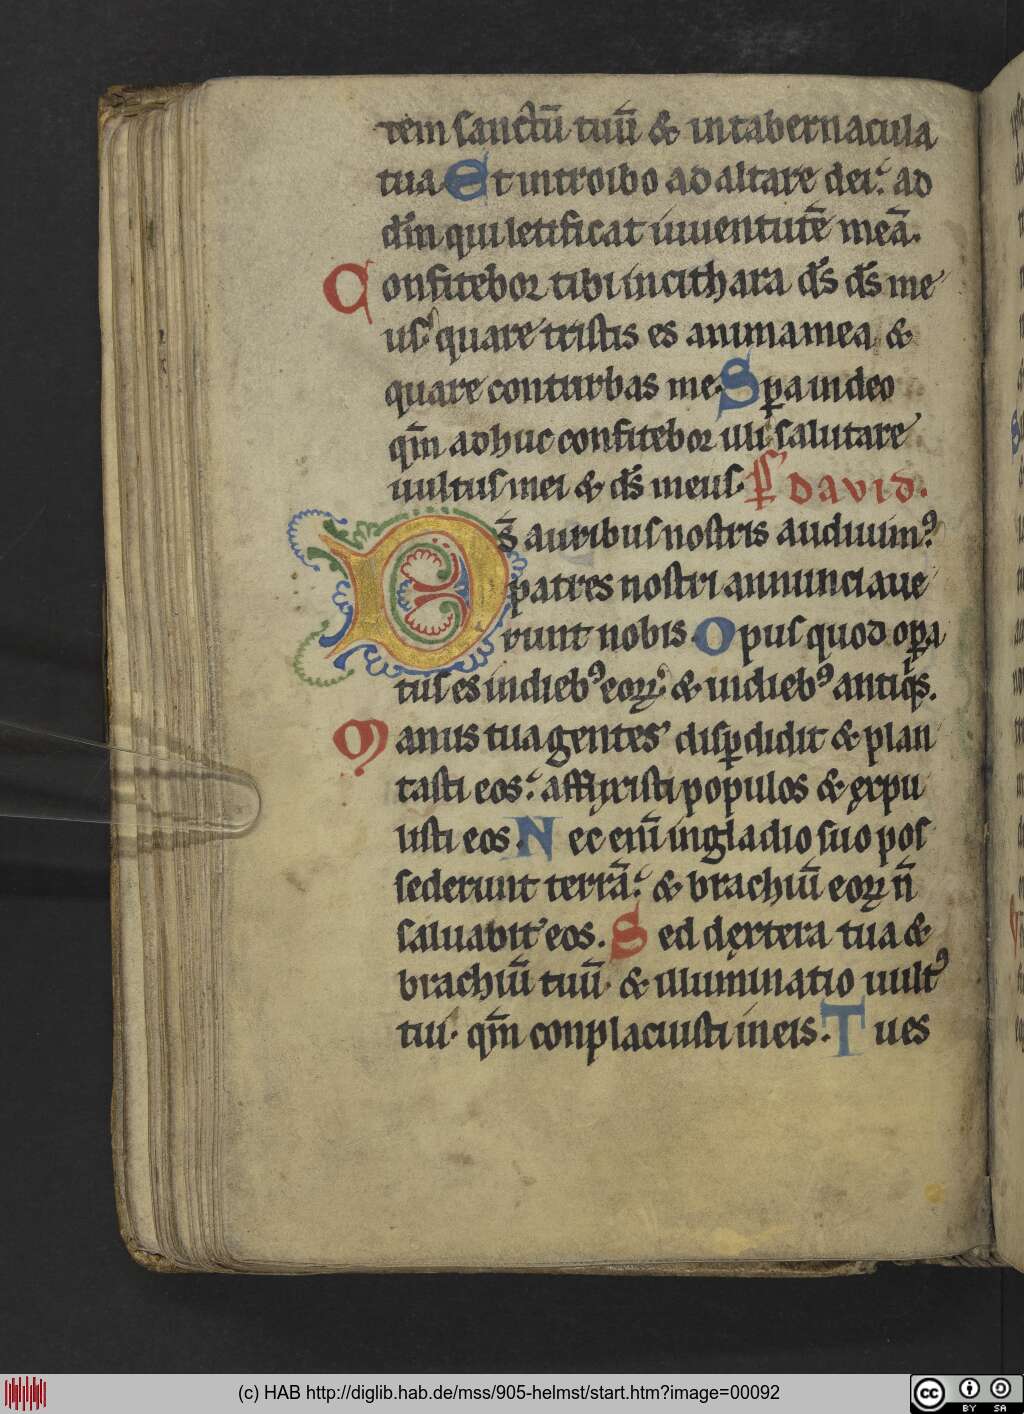 tem sanctū tuū & in tabernacula
tua Et introibo ad altare dei: ad
dm̄ qui letificat iuuentutē meā.
Confitebor tibi in cithara ds̄ ds̄ me
us: quare tristis es anima mea & 
quare conturbas me. Spera in deo
qm̄ adhuc confitebor illi salutare
uultus mei & ds̄ meus. PS DAVID.
Ds̄ auribus nostris audiuimꝰ
patres nostri annunciaue
runt nobis. Opus quod opꝑa
tus es in diebꝰ eoꝝ: & in diebꝰ antiqͥs.
Manus tua gentes disꝑdidit & plan
tasti eos: affixisti populos & ęxpu
listi eos. Nec enī in gladio suo pos
sederunt terrā: & brachiū eoꝝ n̄
saluabit eos. Sed dęxtera tua &
brachiū tuū & illuminatio uultꝰ
tui. qm̄ conplacuisti in eis. Tu es
(c) HAB http://diglib.hab.de/mss/905-helmst/start.htm?image=00092
cc BY SA